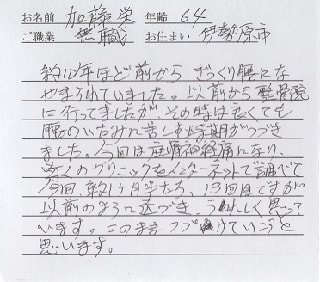 お名前 加藤栄 年齢 64
ご職業 無職 お住まい 伊勢原市
約10年ほど前から ぎっくり腰にな
やまされていました。以前から整骨院
に行ってましたが、その時は良くても
腰のいたみに苦しむ時期がつづき
ました。今回は座骨神経痛になり、
クリニックをインターネットで調べて
今回、約1ヶ月たち、13回目ですが
以前のように近づき、うれしく思って
います。このままつづけていこうと
思います。